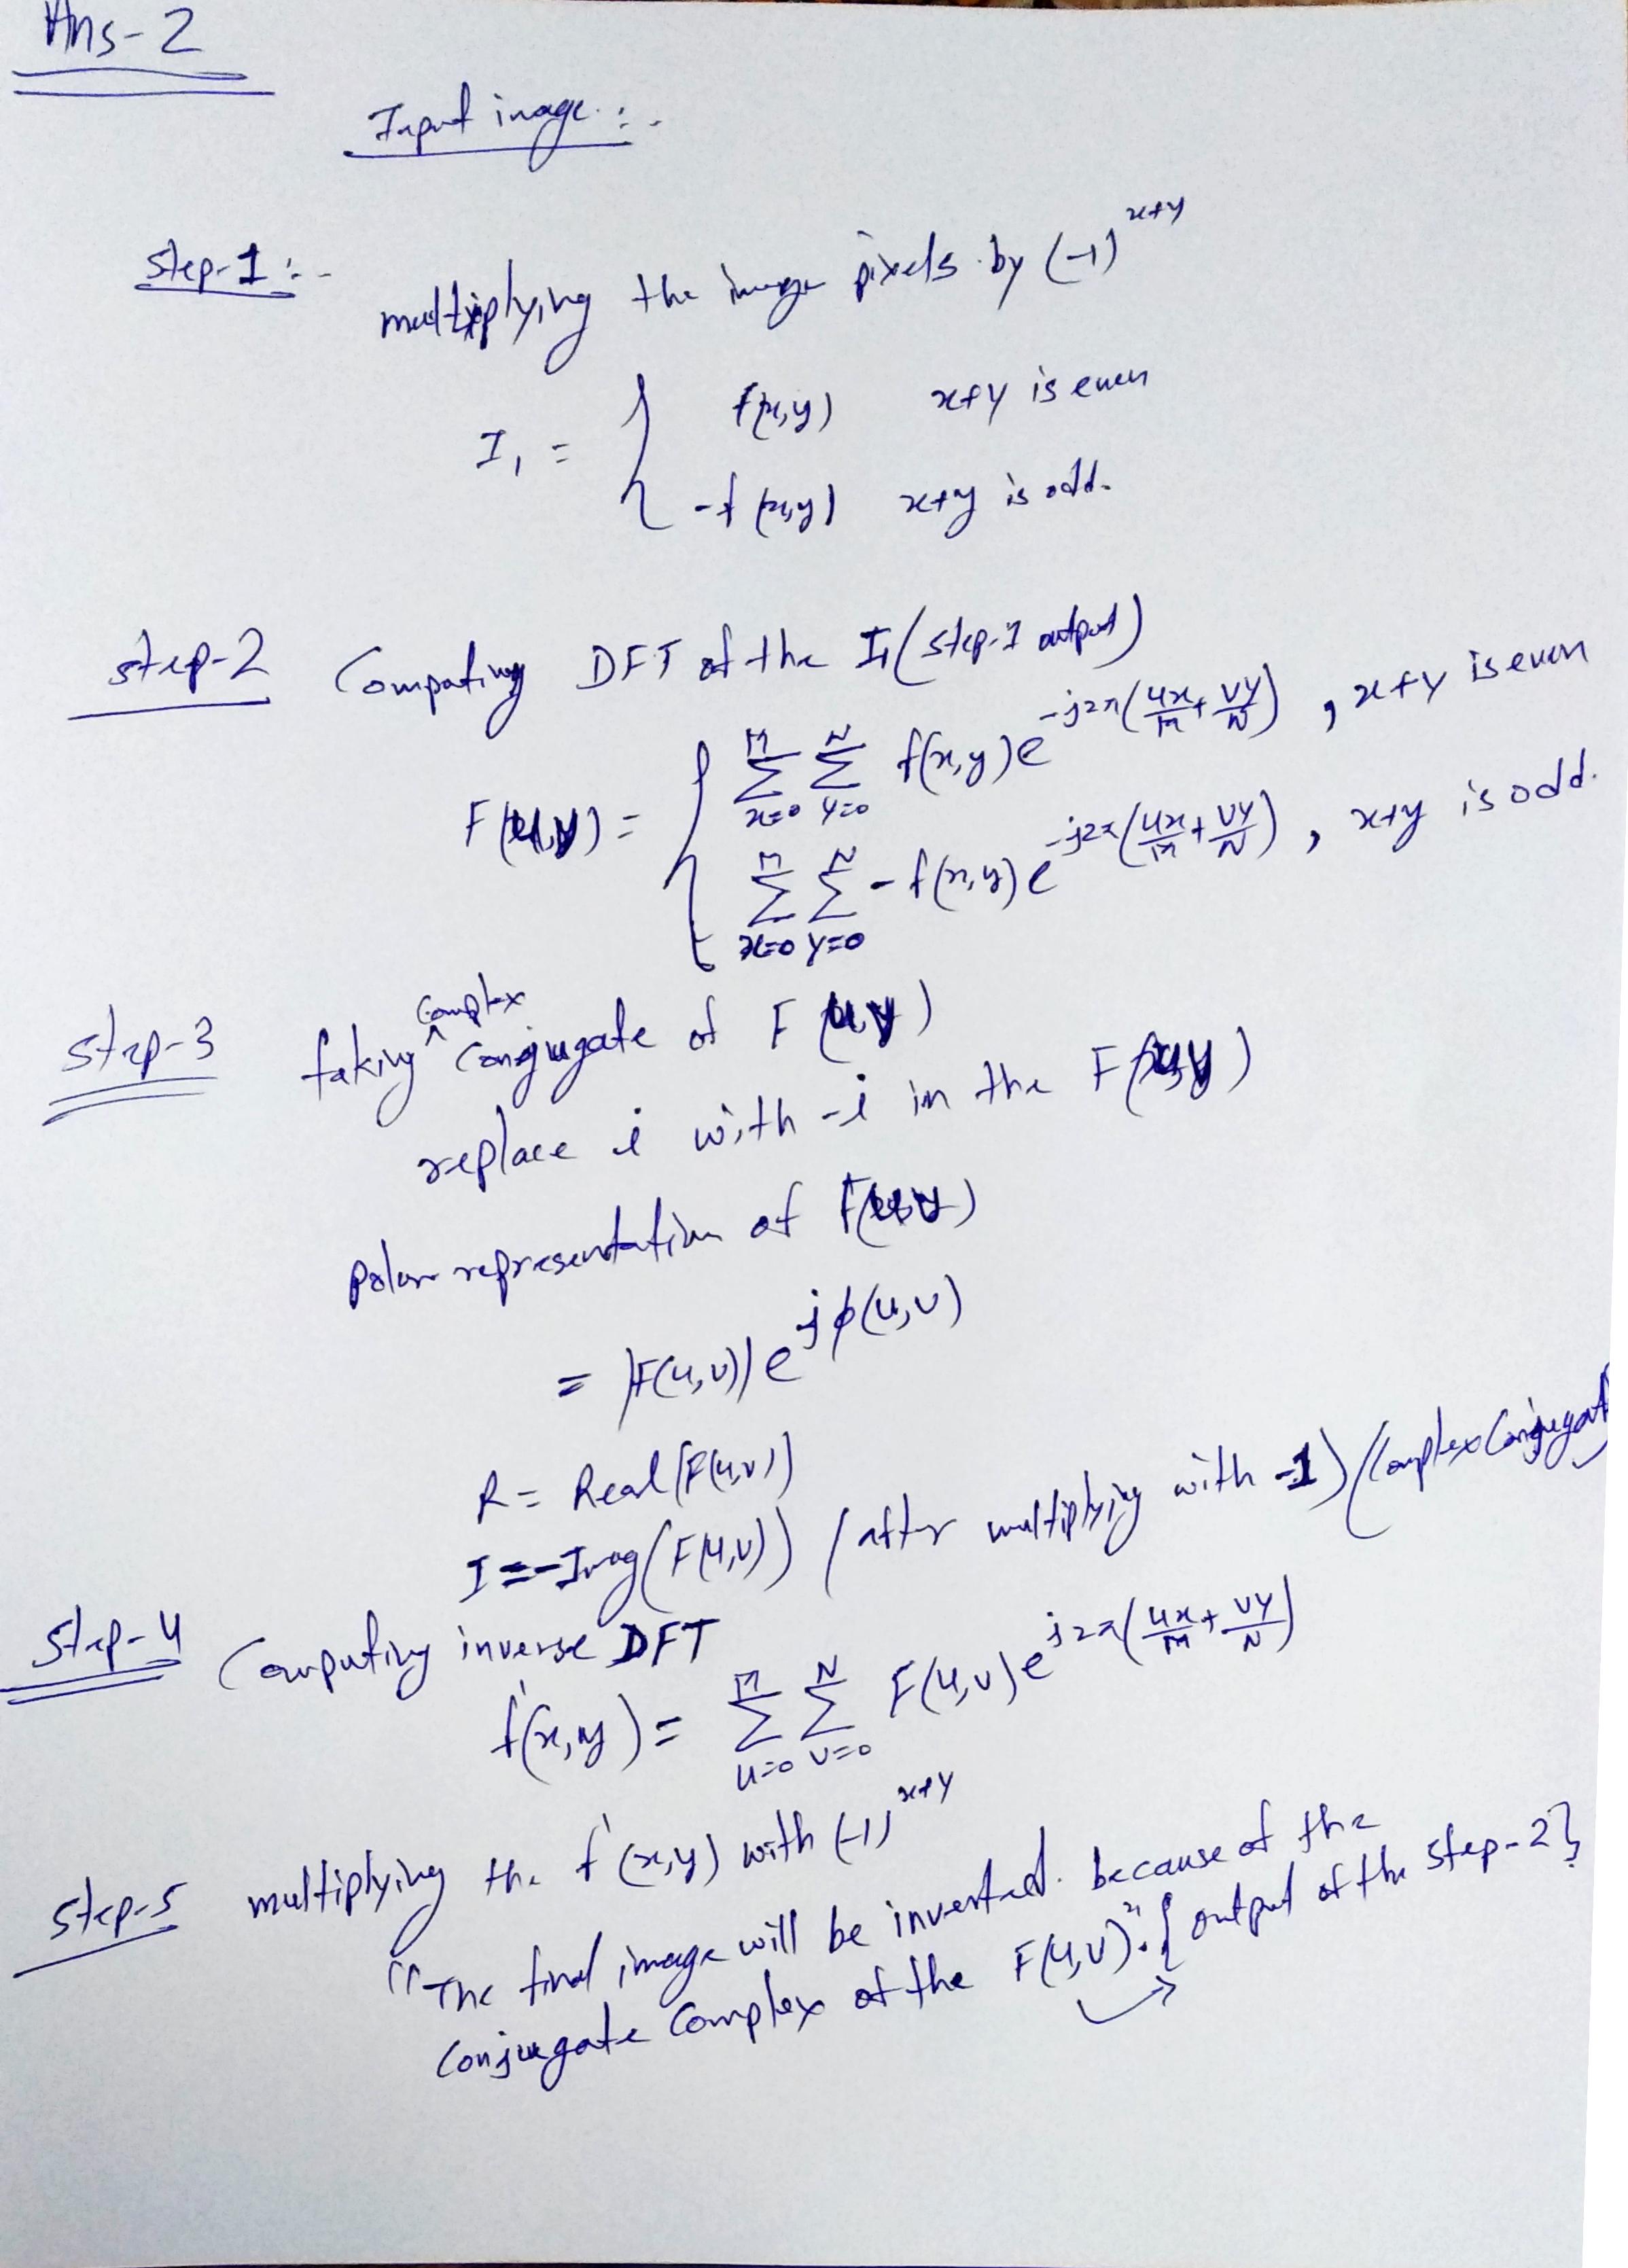 Ans-2
Input image:-
Step-1:-
multiplying the image pixels by (-1)^{x+y}
I₁ = { f(x,y) x+y is even
-f(x,y) x+y is odd.
step-2 Computing DFT of the I₁ (step-1 output)
F(u,v) = { \sum_{x=0}^{M} \sum_{y=0}^{N} f(x,y) e^{-j2π(ux/M + vy/N)} , x+y is even
\sum_{x=0}^{M} \sum_{y=0}^{N} -f(x,y) e^{-j2π(ux/M + vy/N)} , x+y is odd.
step-3 taking complex conjugate of F(u,v)
replace i with -i in the F(u,v)
polar representation of F(u,v)
= |F(u,v)| e^{jϕ(u,v)}
R = Real(F(u,v))
I = -Imag(F(u,v)) (after multiplying with -1) (Complex Conjugat
Step-4 Computing inverse DFT
f'(x,y) = \sum_{u=0}^{M} \sum_{v=0}^{N} F(u,v) e^{j2π(ux/M + vy/N)}
Step-5 multiplying the f'(x,y) with (-1)^{x+y}
"The final image will be inverted because of the
conjugate complex of the F(u,v)". { output of the step-2}